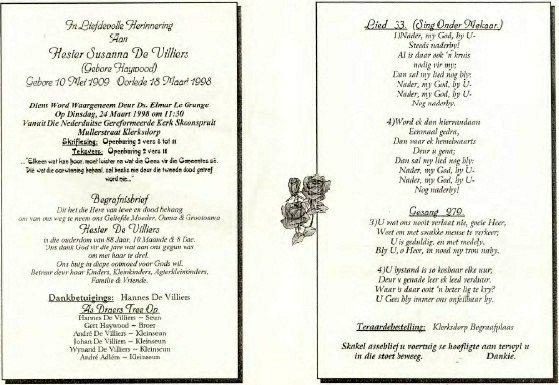 In Liefdevolle Herinnering
Aan
Hester Susanna De Villiers
(Gebore Haywood)
Gebore 10 Mei 1909 Oorlede 18 Maart 1998
Diens Word Waargeneem Deur Ds. Elmar Le Grange
Op Dinsdag, 24 Maart 1998 om 11:30
Vanuit Die Nederduitse Gereformeerde Kerk Skoonspruit
Mullerstraat Klerksdorp
Skriflesing: Openbaring 2 vers 8 tot 11
Teksvers: Openbaring 2 vers 11
..."Elkeen wat kan hoor, moet luister na wat die Gees vir die Gemeentes sê.
Dié wat die oorwinning behaal, sal beslis nie deur die tweede dood getref
word nie..."
Begrafnisbrief
Dit het die Here van lewe en dood behaag
om van ons weg te neem ons Geliefde Moeder, Ouma & Grootouma
Hester De Villiers
in die ouderdom van 88 Jaar, 10 Maande & 8 Dae.
Ons dank God vir die jare wat aan ons gegun was
om met haar te deel.
Ons buig in diepe ootmoed voor Gods wil.
Betreur deur haar Kinders, Kleinkinders, Agterkleinkinders,
Familie & Vriende.
Dankbetuigings: Hannes De Villiers
As Draers Tree Op
Hannes De Villiers ~ Seun
Gert Haywood ~ Broer
André De Villiers ~ Kleinseun
Johan De Villiers ~ Kleinseun
Wynand De Villiers ~ Kleinseun
André Adlem ~ Kleinseun
Lied 33. (Sing Onder Mekaar.)
1)Nader, my God, by U-
Steeds naderby!
Al is daar ook 'n kruis
nodig vir my;
Dan sal my lied nog bly:
Nader, my God, by U-
Nader, my God, by U-
Nog naderby.
4)Word ek dan hiervandaan
Eenmaal gedra,
Dan vaar ek hemelwaarts
Deur u gena;
Dan sal my lied nog bly:
Nader, my God, by U-
Nader, my God, by U-
Nog naderby!
Gesang 279.
3)U wat ons nooit verlaat nie, goeie Heer,
Weet om met swakke mense te verkeer;
U is geduldig, en met medely.
Bly U, o Heer, in nood my trou naby.
4)U bystand is so kosbaar elke uur;
Deur u genade leer ek leed verduur.
Waar is daar ooit 'n beter lig te kry?
U Gees bly immer ons onfeilbaar by.
Teraardebestelling: Klerksdorp Begraafplaas
Skakel asseblief u voertuig se hoofligte aan terwyl u
in die stoet beweeg. Dankie.